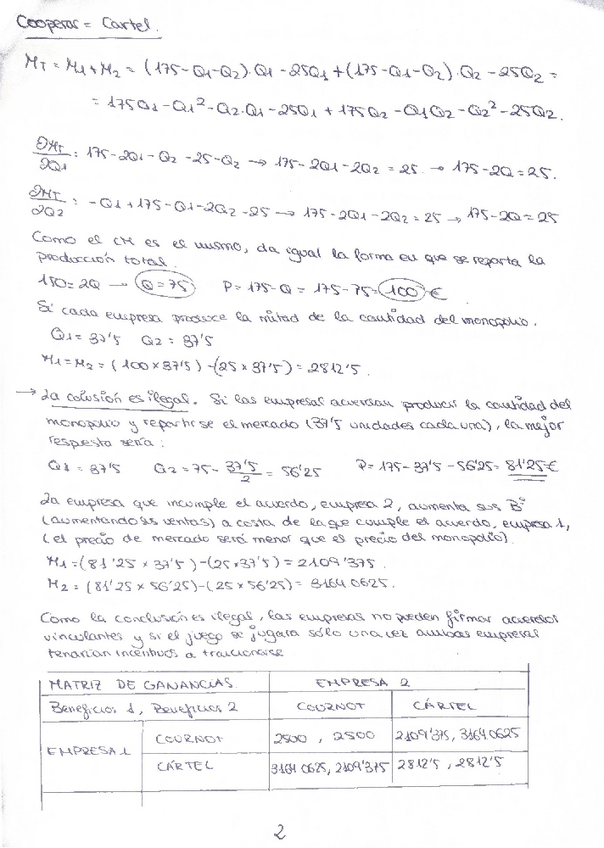 Cooperar = Cartel.
Π_T = Π1 + Π2 = (175-Q1-Q2)·Q1 - 25Q1 + (175-Q1-Q2)·Q2 - 25Q2 =
= 175Q1 - Q1² - Q2·Q1 - 25Q1 + 175Q2 - Q1Q2 - Q2² - 25Q2.
∂Π_T/∂Q1 : 175-2Q1-Q2-25-Q2 → 175-2Q1-2Q2 = 25 → 175-2Q = 25.
∂Π_T/∂Q2 : -Q1+175-Q1-2Q2-25 → 175-2Q1-2Q2 = 25 → 175-2Q = 25
Como el CM es el mismo, da igual la forma en que se reporta la
producción total.
150 = 2Q → Q = 75 P = 175-Q = 175-75 = 100 €
Si cada empresa produce la mitad de la cantidad del monopolio.
Q1 = 37'5 Q2 = 37'5
Π1 = Π2 = (100 x 37'5) - (25 x 37'5) = 2812'5.
→ La colusión es ilegal. Si las empresas acuerdan producir la cantidad del
monopolio y repartirse el mercado (37'5 unidades cada una), la mejor
respuesta sería:
Q1 = 37'5 Q2 = 75 - 37'5/2 = 56'25 P = 175-37'5-56'25 = 81'25 €
La empresa que incumple el acuerdo, empresa 2, aumenta sus Bº
(aumentando sus ventas) a costa de la que cumple el acuerdo, empresa 1,
(el precio de mercado será menor que el precio del monopolio).
Π1 = (81'25 x 37'5) - (25 x 37'5) = 2109'375.
Π2 = (81'25 x 56'25) - (25 x 56'25) = 3164 0625.
Como la conclusión es ilegal, las empresas no pueden firmar acuerdos
vinculantes y si el juego se jugara sólo una vez ambas empresas
tendrían incentivos a traicionarse
MATRIZ DE GANANCIAS EMPRESA 2
Beneficios 1, Beneficios 2 COURNOT CÁRTEL
EMPRESA 1 COURNOT 2500 , 2500 2109'375, 3164 0625
CÁRTEL 3164 0625, 2109'375 2812'5 , 2812'5
2